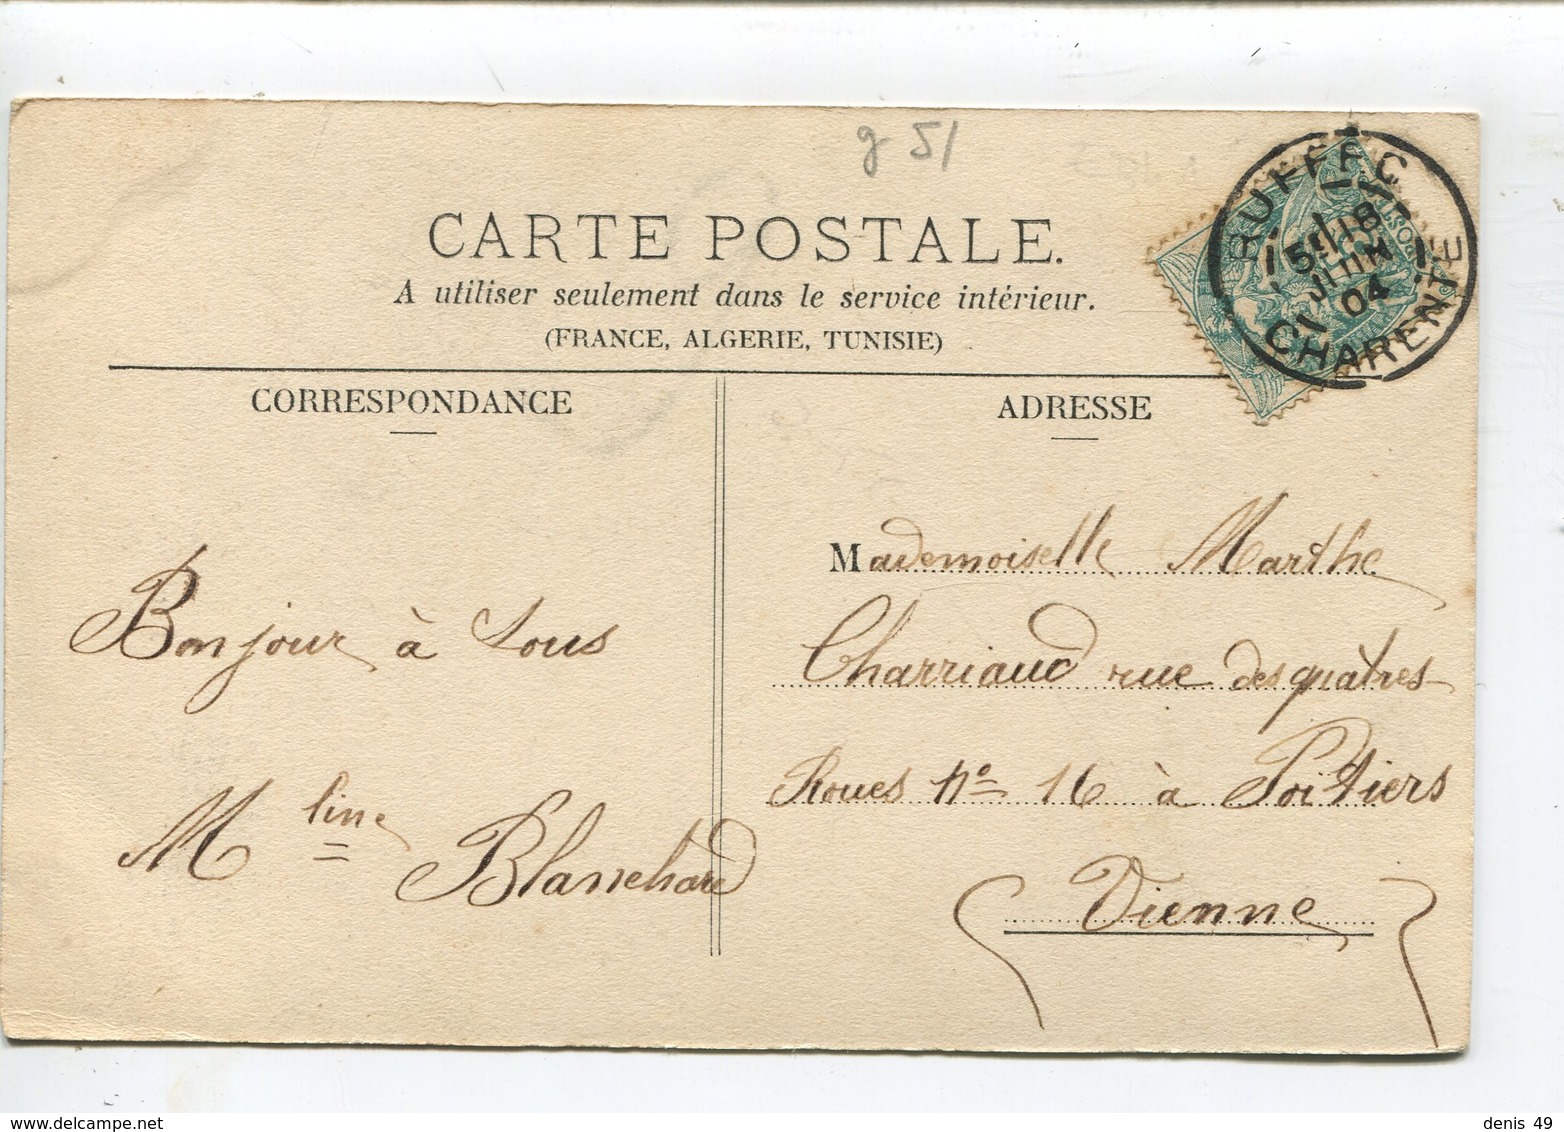 g 51
CARTE POSTALE.
A utiliser seulement dans le service intérieur.
(FRANCE, ALGERIE, TUNISIE)
RUFFEC
5E 18
JUIN
04
CHARENTE
CORRESPONDANCE
Bonjour à tous
Mline Blanchard
ADRESSE
Mademoiselle Marthe
Charriaud rue des quàtres
Roues No 16 à Poitiers
Vienne
www.delcampe.net
denis 49